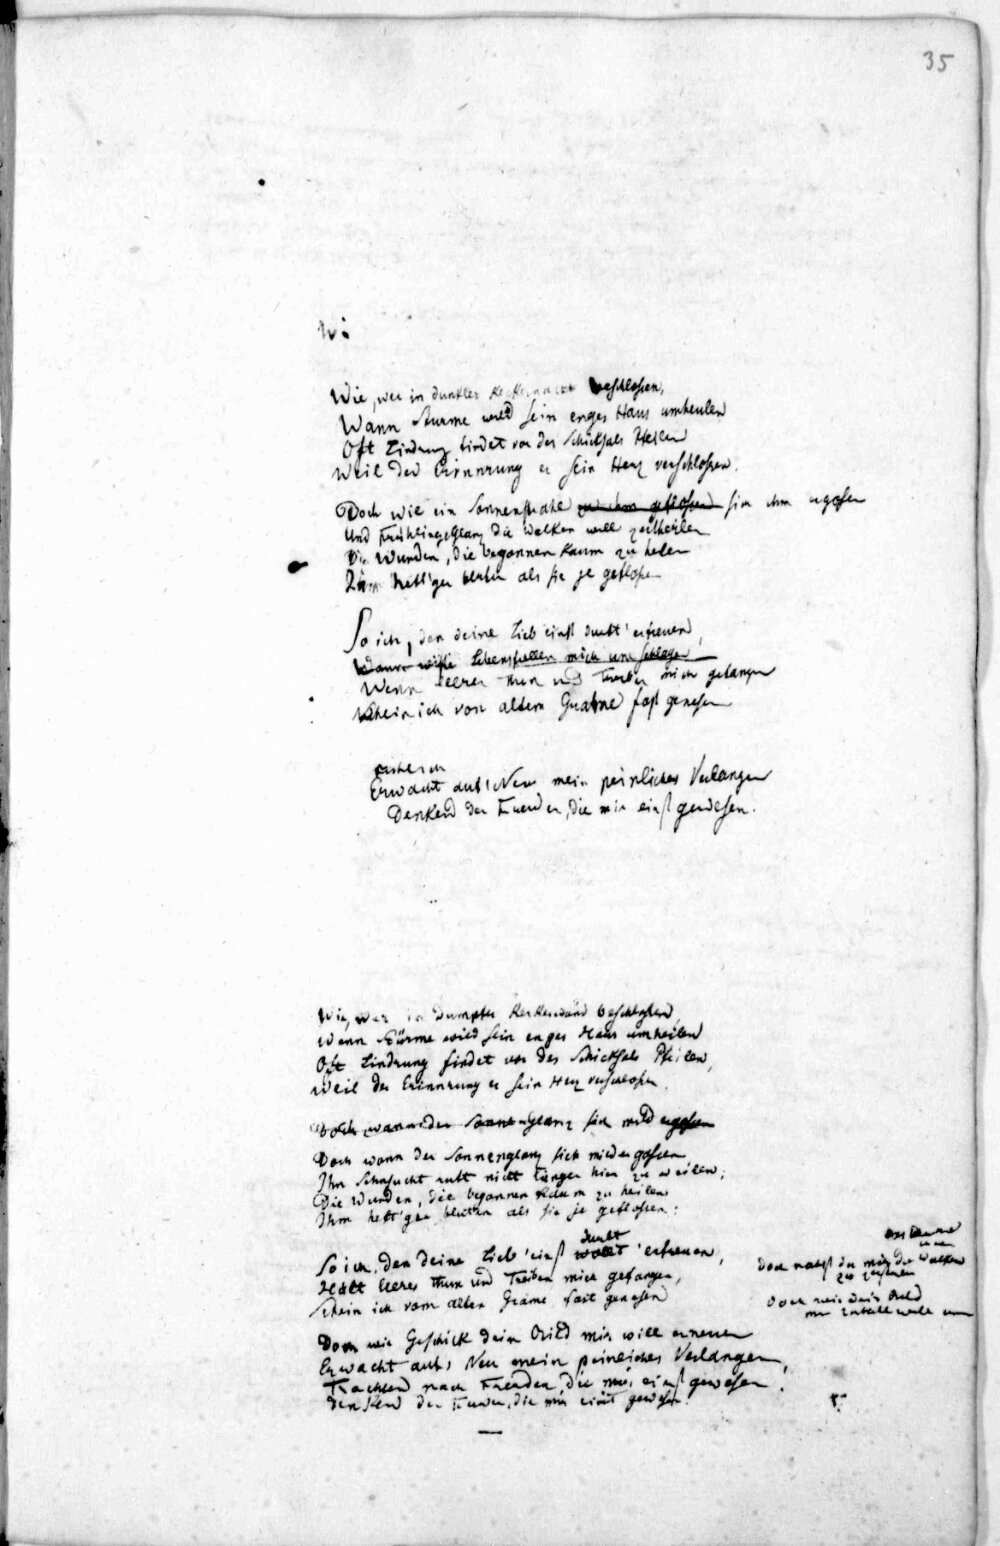 35
Wi
Wie, wer in dunkler Kerkernacht beschlossen,
Wann Sturme wild sein enges Haus umheulen
Oft Lindrung findet vor des Schicksals Pfeilen
Weil der Erinnrung er sein Herz verschlossen.
Doch wie ein Sonnenstrahl zu ihm geflossen sich ihm ergossen
Und Frühlingsglanz die Wolken will zertheilen
Die Wunden, die begonnen kaum zu heilen
Ihm heft'ger bluten als sie je geflossen
So ich, den deine Lieb' einst durft' erfreuen,
Wann wilde Lebenswellen mich umschlagen
Wenn leeres Thun und Treiben mich gefangen
Schein ich von altem Grame fast genesen
Erwacht aufs Neu mein peinliches Verlangen
Denkend der Freuden, die mir einst gewesen.
Wie, wer in dumpfer Kerkerwand beschlossen,
Wann Stürme wild sein enges Haus umheulen
Oft Lindrung findet vor des Schicksals Pfeilen,
Weil der Erinnrung er sein Herz verschlossen.
Doch wann der Sonnenglanz sich mild ergossen
Doch wann der Sonnenglanz sich niedergossen
Ihn Sehnsucht ruft nicht länger hier zu weilen;
Die Wunden, die begonnen kaum zu heilen
Ihm heft'ger bluten als sie je geflossen:
durft
So ich, den deine Lieb' einst wollt' erfreuen,
Hält leeres Thun und Treiben mich gefangen,
Schein ich vom alten Grame fast genesen
Doch wie Geschick dein Bild mir will erneuen
Erwacht aufs Neu mein peinliches Verlangen,
Trachtend nach Freuden die mir einst gewesen.
denkend der Freuden, die mir einst gewesen.
Doch nahst du mir die Wolken
Doch wie dein Bild